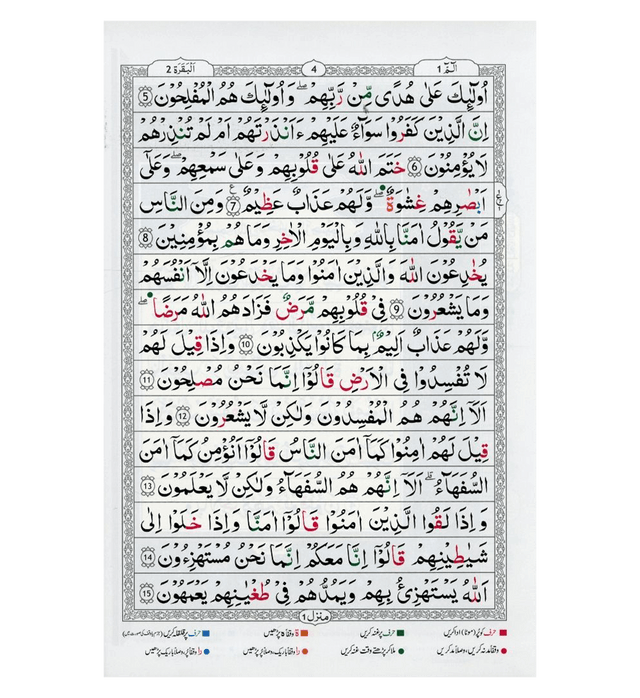 الٓمّٓ 1
4
اَلْبَقَرَة 2
اُولٰٓئِكَ عَلٰى هُدًى مِّنْ رَّبِّهِمْ ۖ وَاُولٰٓئِكَ هُمُ الْمُفْلِحُوْنَ 5
اِنَّ الَّذِيْنَ كَفَرُوْا سَوَآءٌ عَلَيْهِمْ ءَاَنْذَرْتَهُمْ اَمْ لَمْ تُنْذِرْهُمْ
لَا يُؤْمِنُوْنَ 6 خَتَمَ اللّٰهُ عَلٰى قُلُوْبِهِمْ وَعَلٰى سَمْعِهِمْ ۖ وَعَلٰٓى
اَبْصَارِهِمْ غِشَاوَةٌ ۖ وَّلَهُمْ عَذَابٌ عَظِيْمٌ 7 وَمِنَ النَّاسِ
مَنْ يَّقُوْلُ اٰمَنَّا بِاللّٰهِ وَبِالْيَوْمِ الْاٰخِرِ وَمَا هُمْ بِمُؤْمِنِيْنَ 8
يُخٰدِعُوْنَ اللّٰهَ وَالَّذِيْنَ اٰمَنُوْا وَمَا يَخْدَعُوْنَ اِلَّآ اَنْفُسَهُمْ
وَمَا يَشْعُرُوْنَ 9 فِيْ قُلُوْبِهِمْ مَّرَضٌ فَزَادَهُمُ اللّٰهُ مَرَضًا ۖ
وَلَهُمْ عَذَابٌ اَلِيْمٌ بِمَا كَانُوْا يَكْذِبُوْنَ 10 وَاِذَا قِيْلَ لَهُمْ
لَا تُفْسِدُوْا فِي الْاَرْضِ قَالُوْٓا اِنَّمَا نَحْنُ مُصْلِحُوْنَ 11
اَلَآ اِنَّهُمْ هُمُ الْمُفْسِدُوْنَ وَلٰكِنْ لَّا يَشْعُرُوْنَ 12 وَاِذَا
قِيْلَ لَهُمْ اٰمِنُوْا كَمَآ اٰمَنَ النَّاسُ قَالُوْٓا اَنُؤْمِنُ كَمَآ اٰمَنَ
السُّفَهَآءُ ۗ اَلَآ اِنَّهُمْ هُمُ السُّفَهَآءُ وَلٰكِنْ لَّا يَعْلَمُوْنَ 13
وَاِذَا لَقُوا الَّذِيْنَ اٰمَنُوْا قَالُوْٓا اٰمَنَّا وَاِذَا خَلَوْا اِلٰى
شَيٰطِيْنِهِمْ قَالُوْٓا اِنَّا مَعَكُمْ اِنَّمَا نَحْنُ مُسْتَهْزِءُوْنَ 14
اَللّٰهُ يَسْتَهْزِئُ بِهِمْ وَيَمُدُّهُمْ فِيْ طُغْيَانِهِمْ يَعْمَهُوْنَ 15
منزل 1
حرف کو پُر (موٹا) ادا کریں حرف پر غنہ کریں ة وقفاً ه پڑھیں حرف پر قلقلہ کریں
وقفاً مد نہ کریں، وصلاً مد کریں ملا کر پڑھتے وقت غنہ کریں را وقفاً باریک، وصلاً پُر پڑھیں را وقفاً پُر، وصلاً باریک پڑھیں